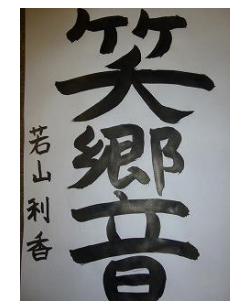 笑響
若山利香